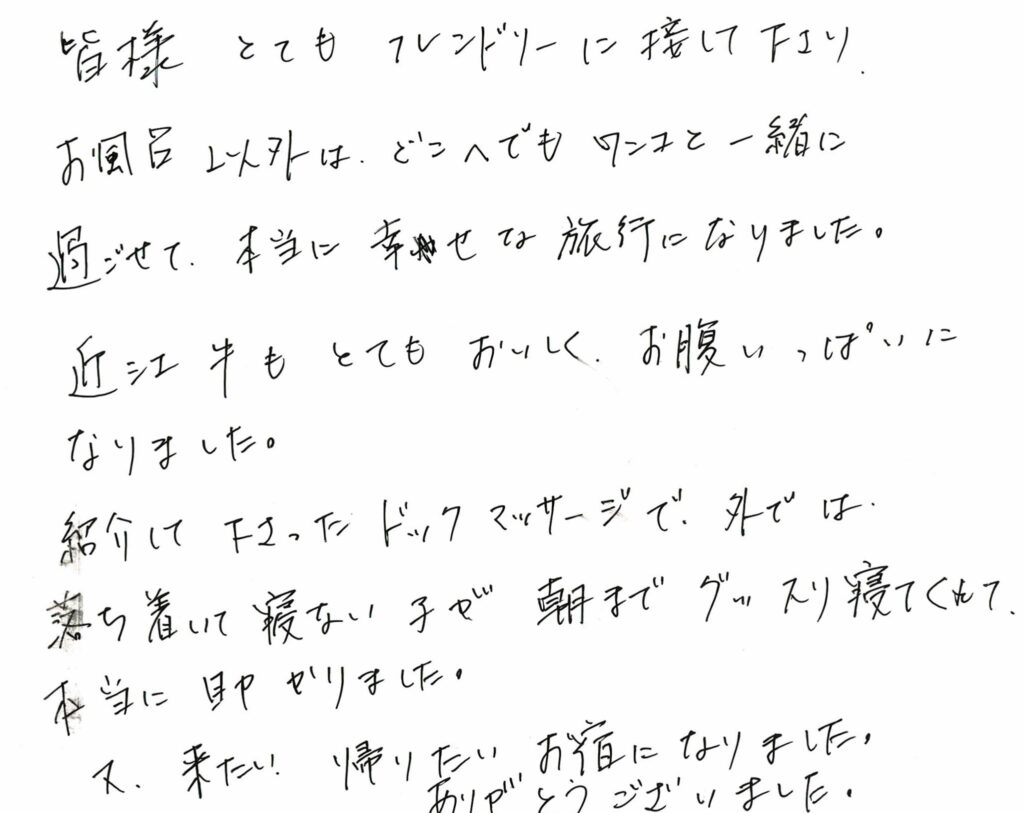 皆様 とても フレンドリーに接して下さり、
お風呂以外は、どこへでも ワンコと一緒に
過ごせて、本当に幸せな旅行になりました。
近江牛も とても おいしく、お腹いっぱいに
なりました。
紹介して下さった ドックマッサージで、外では、
落ち着いて寝ない子が 朝まで グッスリ寝てくれて、
本当に助かりました。
又、来たい 帰りたい お宿になりました。
ありがとうございました。